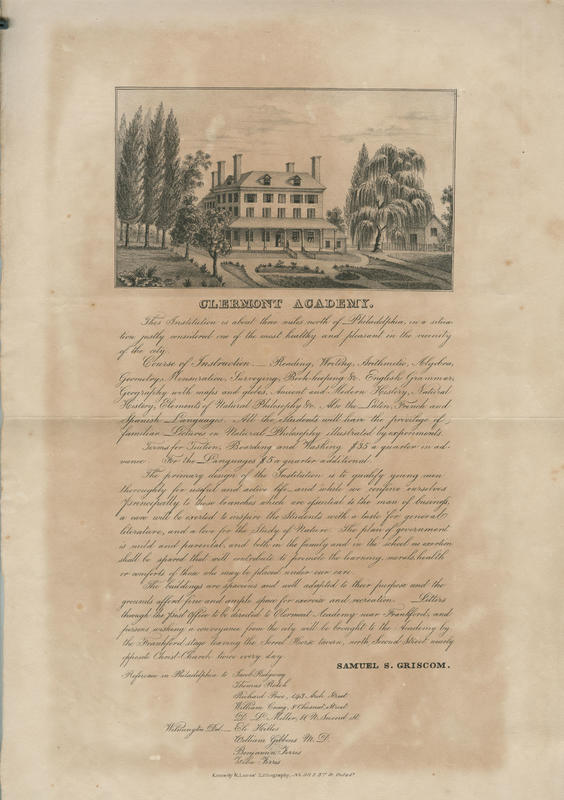 CLERMONT ACADEMY.
This Institution is about three miles north of Philadelphia, in a situa-
tion justly considered one of the most healthy and pleasant in the vicinity
of the city.
Course of Instruction — Reading, Writing, Arithmetic, Algebra,
Geometry, Mensuration, Surveying, Book-keeping &c. English Grammar,
Geography with maps and globes, Ancient and Modern History, Natural
History, Elements of Natural Philosophy &c. Also the Latin, French and
Spanish Languages. All the Students will have the privilege of
familiar Lectures on Natural Philosophy illustrated by experiments.
Terms for Tuition, Boarding and Washing $35 a quarter in ad-
vance. For the Languages $5 a quarter additional.
The primary design of the Institution is to qualify young men
thoroughly for useful and active life—and while we confine ourselves
principally to those branches which are essential to the man of business,
a care will be exerted to inspire the Students with a taste for general
literature, and a love for the Study of Nature. The plan of government
is mild and parental, and both in the family and in the school no exertion
shall be spared that will contribute to promote the learning, morals, health
or comforts of those who may be placed under our care.
The buildings are spacious and well adapted to their purpose and the
grounds afford fine and ample space for exercise and recreation. — Letters
through the Post Office to be directed to Clermont Academy near Frankford, and
persons wishing a conveyance from the city will be brought to the Academy by
the Frankford stage leaving the Sorrel Horse tavern, north Second Street nearly
opposite Christ-Church twice every day.
SAMUEL S. GRISCOM.
Reference in Philadelphia to Jacob Ridgway
Thomas Rotch
Richard Price, 143 Arch Street
William Craig, 8 Chesnut Street
Wilmington Del. — Eli Hilles
William Gibbons M.D.
Benjamin Ferris
Ziba Ferris
Kennedy & Lucas' Lithography,